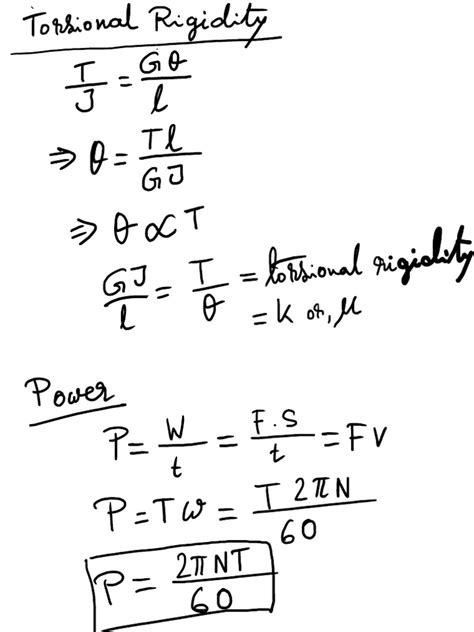 Torsional Rigidity
T/J = Gθ/l
⇒ θ = Tl/GJ
⇒ θ ∝ T
GJ/l = T/θ = torsional rigidity
= k or, μ
Power
P = W/t = F.S/t = FV
P = Tω = T 2πN/60
P = 2πNT/60